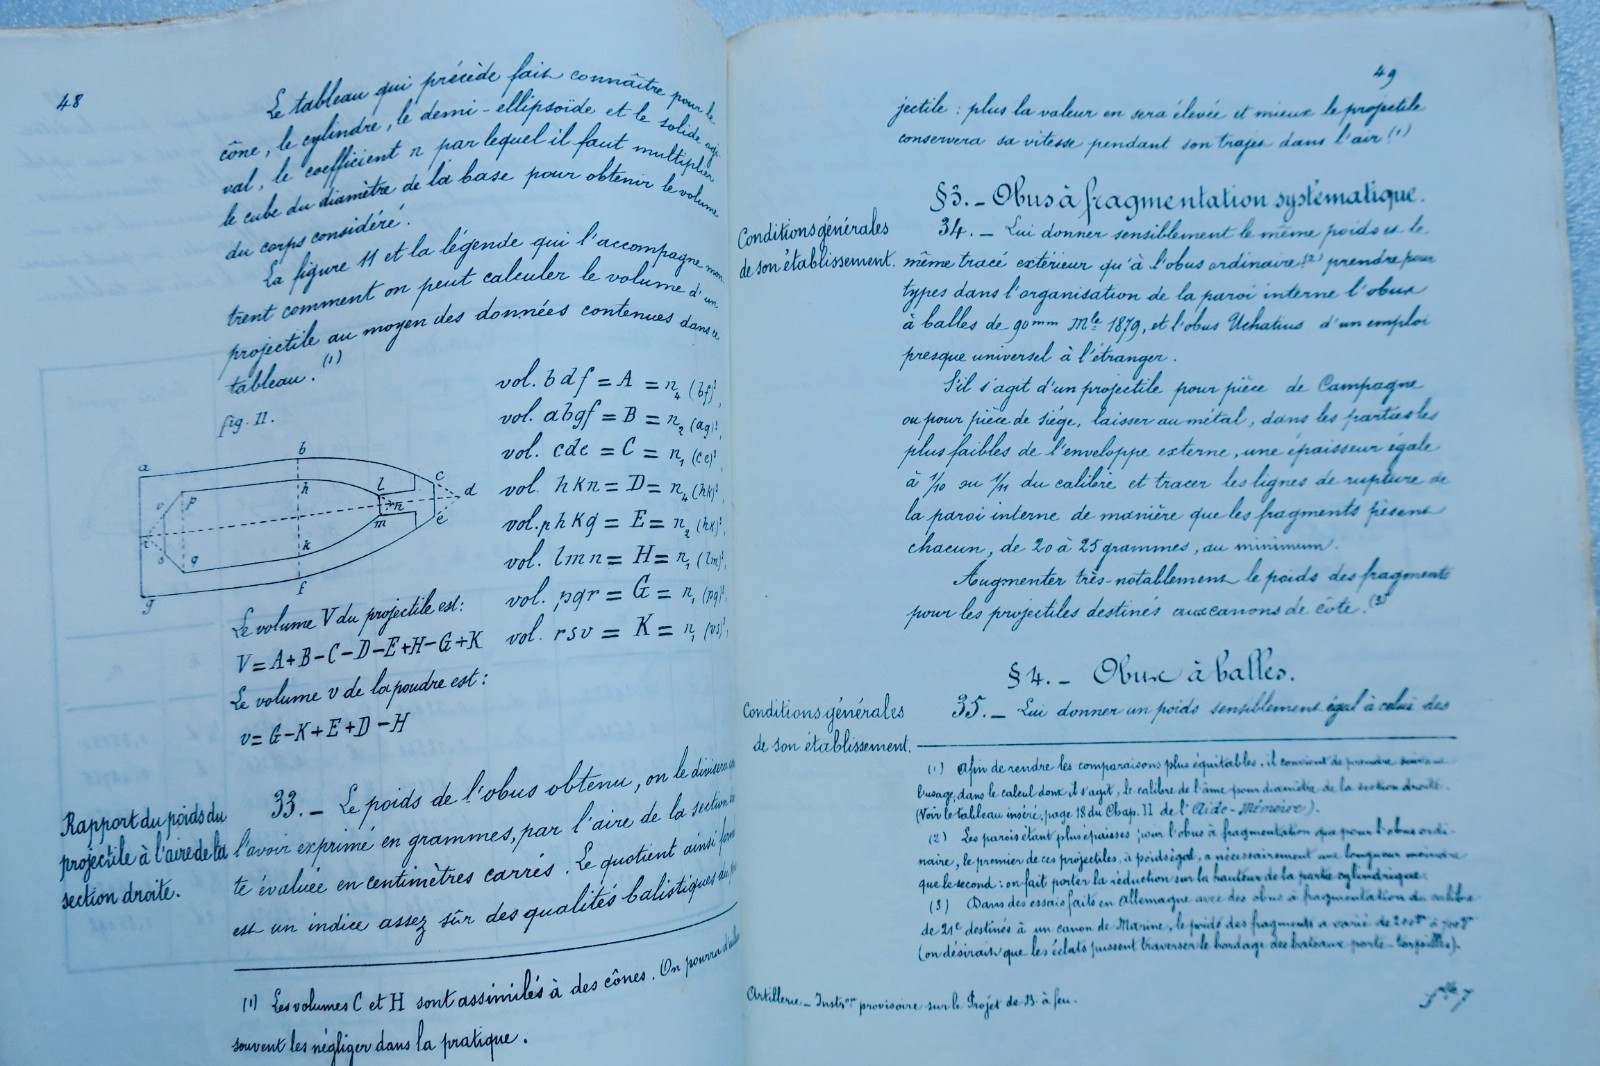 48
Le tableau qui précède fait connaître pour le
cône, le cylindre, le demi-ellipsoïde et le solide ogi-
val, le coefficient n par lequel il faut multiplier
le cube du diamètre de la base pour obtenir le volume
du corps considéré.
La figure 11 et la légende qui l'accompagne mon-
trent comment on peut calculer le volume d'un
projectile au moyen des données contenues dans ce
tableau. (1)
fig. 11.
a b c d e f g h k l m n o p q r s
vol. bdf = A = n₄ (bf)³,
vol. abgf = B = n₂ (ag)³,
vol. cde = C = n₁ (ce)³,
vol. hkn = D = n₄ (hk)³,
vol. phkq = E = n₂ (hk)³,
vol. lmn = H = n₁ (lm)³,
vol. pqr = G = n₁ (pq)³,
vol. rsv = K = n₁ (vs)³,
Le volume V du projectile est:
V=A+B-C-D-E+H-G+K
Le volume v de la poudre est:
v=G-K+E+D-H
Rapport du poids du
projectile à l'aire de la
section droite.
33._ Le poids de l'obus obtenu, on le divisera
l'avoir exprimé en grammes, par l'aire de la section
te évaluée en centimètres carrés. Le quotient ainsi
est un indice assez sûr des qualités balistiques du
(1) Les volumes C et H sont assimilés à des cônes. On pourra
souvent les négliger dans la pratique.
49
jectile : plus la valeur en sera élevée et mieux le projectile
conservera sa vitesse pendant son trajet dans l'air (1)
§3._ Obus à fragmentation systématique.
Conditions générales
de son établissement.
34._ Lui donner sensiblement le même poids et le
même tracé extérieur qu'à l'obus ordinaire (2) prendre pour
types dans l'organisation de la paroi interne l'obus
à balles de 90mm Mle 1879, et l'obus Uchatius d'un emploi
presque universel à l'étranger.
S'il s'agit d'un projectile pour pièce de Campagne
ou pour pièce de Siége, laisser au métal, dans les parties les
plus faibles de l'enveloppe externe, une épaisseur égale
à 1/10 ou 1/11 du calibre et tracer les lignes de rupture de
la paroi interne de manière que les fragments pèsent
chacun, de 20 à 25 grammes, au minimum.
Augmenter très-notablement le poids des fragments
pour les projectiles destinés aux canons de côte. (3)
§4._ Obus à balles.
Conditions générales
de son établissement.
35._ Lui donner un poids sensiblement égal à celui des
(1) Afin de rendre les comparaisons plus équitables, il convient de prendre suivant
l'usage, dans le calcul dont il s'agit, le calibre de l'âme pour diamètre de la section droite.
(Voir le tableau inséré, page 18 du Chap. II de l'Aide-Mémoire).
(2) Les parois étant plus épaisses pour l'obus à fragmentation que pour l'obus ordi-
naire, le premier de ces projectiles, à poids égal, a nécessairement une longueur moindre
que le second: on fait porter la réduction sur la hauteur de la partie cylindrique.
(3) Dans des essais faits en Allemagne avec des obus à fragmentation du calibre
de 21c destinés à un canon de Marine, le poids des fragments a varié de 200gr à 700gr
(on désirait que les éclats pussent traverser le bordage des bateaux porte-torpilles).
Artillerie _ Instron provisoire sur le Projet de B. à feu.
flle 7